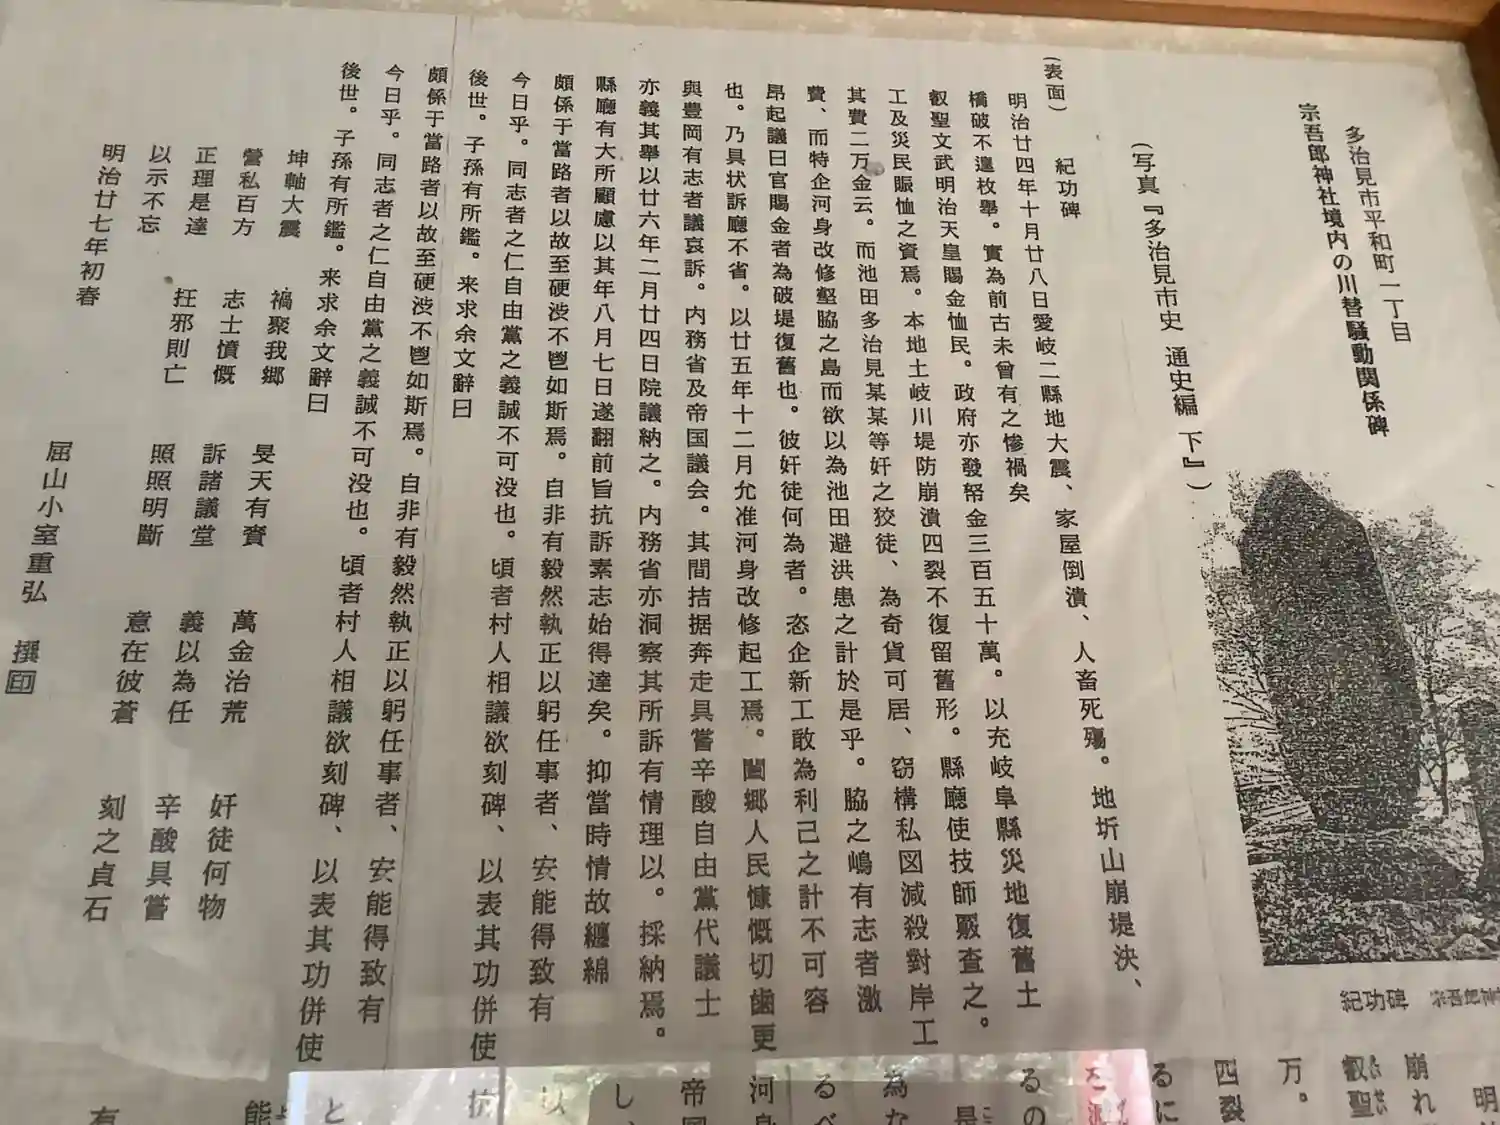 多治見市平和町一丁目
宗吾郎神社境内の川替騒動関係碑
(写真『多治見市史 通史編 下』)
紀功碑
(表面) 紀功碑
明治廿四年十月廿八日愛岐二縣地大震、家屋倒潰、人畜死殤。地圻山崩堤決、
橋破不遑枚舉。實為前古未曾有之惨禍矣
叡聖文武明治天皇賜金恤民。政府亦發帑金三百五十萬。以充岐阜縣災地復舊土
工及災民賑恤之資焉。本地土岐川堤防崩潰四裂不復留舊形。縣廳使技師覈査之。
其費二万金云。而池田多治見某某等奸之狡徒、為奇貨可居、窃構私図減殺對岸工
費、而特企河身改修壑脇之島而欲以為池田避洪患之計於是乎。脇之嶋有志者激
昂起議曰官賜金者為破堤復舊也。彼奸徒何為者。恣企新工敢為利己之計不可容
也。乃具状訴廳不省。以廿五年十二月允准河身改修起工焉。闔郷人民慷慨切歯更
與豊岡有志者議哀訴。内務省及帝国議会。其間拮据奔走具嘗辛酸自由黨代議士
亦義其舉以廿六年二月廿四日院議納之。内務省亦洞察其所訴有情理以。採納焉。
縣廳有大所顧慮以其年八月七日遂翻前旨抗訴素志始得達矣。抑當時情故纏綿
頗係于當路者以故至硬渋不鬯如斯焉。自非有毅然執正以躬任事者、安能得致有
今日乎。同志者之仁自由黨之義誠不可没也。頃者村人相議欲刻碑、以表其功併使
後世。子孫有所鑑。来求余文辭曰
頗係于當路者以故至硬渋不鬯如斯焉。自非有毅然執正以躬任事者、安能得致有
今日乎。同志者之仁自由黨之義誠不可没也。頃者村人相議欲刻碑、以表其功併使
後世。子孫有所鑑。来求余文辭曰
坤軸大震 禍聚我郷 旻天有賚 萬金治荒 奸徒何物
營私百方 志士憤慨 訴諸議堂 義以為任 辛酸具嘗
正理是達 抂邪則亡 照照明斷 意在彼蒼 刻之貞石
以示不忘
明治廿七年初春
屈山小室重弘 撰印
崩れ
叡聖
万。
四裂
るに
るの
為な
るべ
河身
帝国
し、
以
抗
と
能
有